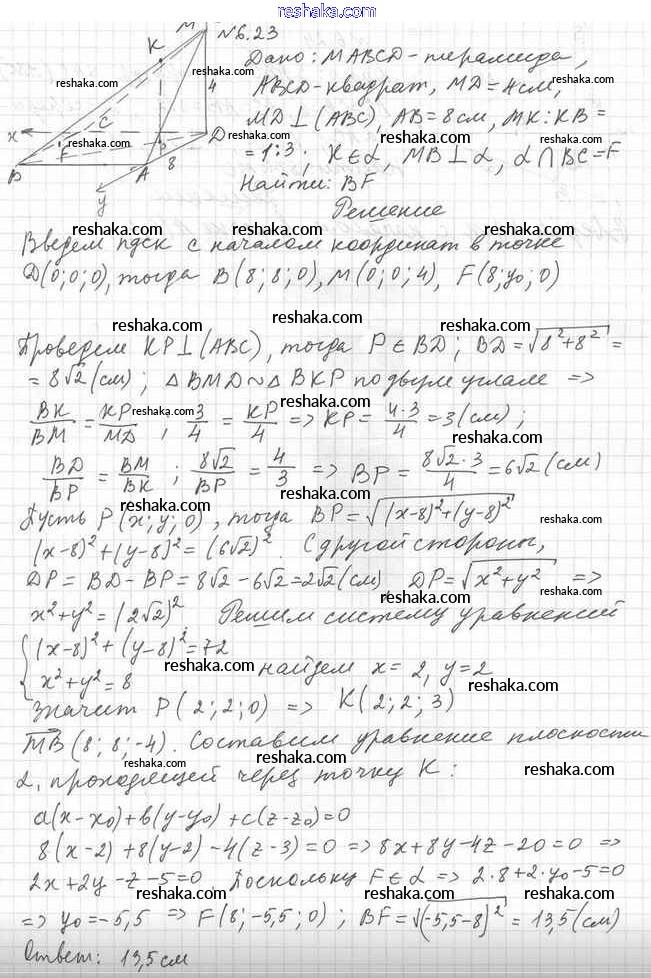 reshak.ru
№6.23
Дано: MABCD-пирамида,
ABCD-квадрат, MD=4см,
MD⊥(ABC), AB=8см, MK:KB=
=1:3, K∈α, MB⊥α, α∩BC=F
Найти: BF
M
K
4
x
C
D
F
P
B
A
8
y
Решение
Введем пдск с началом координат в точке
D(0;0;0), тогда B(8;8;0), M(0;0;4), F(8;y₀;0)
Проведем KP⊥(ABC), тогда P∈BD; BD=√(8²+8²)=
=8√2(см); △BMD∾△BKP по двум углам =>
BK/BM=KP/MD, 3/4=KP/4 => KP=4·3/4=3(см);
BD/BP=BM/BK; 8√2/BP=4/3 => BP=8√2·3/4=6√2(см)
Пусть P(x;y;0), тогда BP=√((x-8)²+(y-8)²)
(x-8)²+(y-8)²=(6√2)². С другой стороны,
DP=BD-BP=8√2-6√2=2√2(см), DP=√(x²+y²) =>
x²+y²=(2√2)². Решим систему уравнений
{(x-8)²+(y-8)²=72
{x²+y²=8 найдем x=2, y=2
Значит P(2;2;0) => K(2;2;3)
MB(8;8;-4). Составим уравнение плоскости
α, проходящей через точку K:
a(x-x₀)+b(y-y₀)+c(z-z₀)=0
8(x-2)+8(y-2)-4(z-3)=0 => 8x+8y-4z-20=0 =>
2x+2y-z-5=0. Поскольку F∈α => 2·8+2·y₀-5=0
=> y₀=-5,5 => F(8;-5,5;0); BF=√(-5,5-8)²=13,5(см)
Ответ: 13,5см
reshaka.com